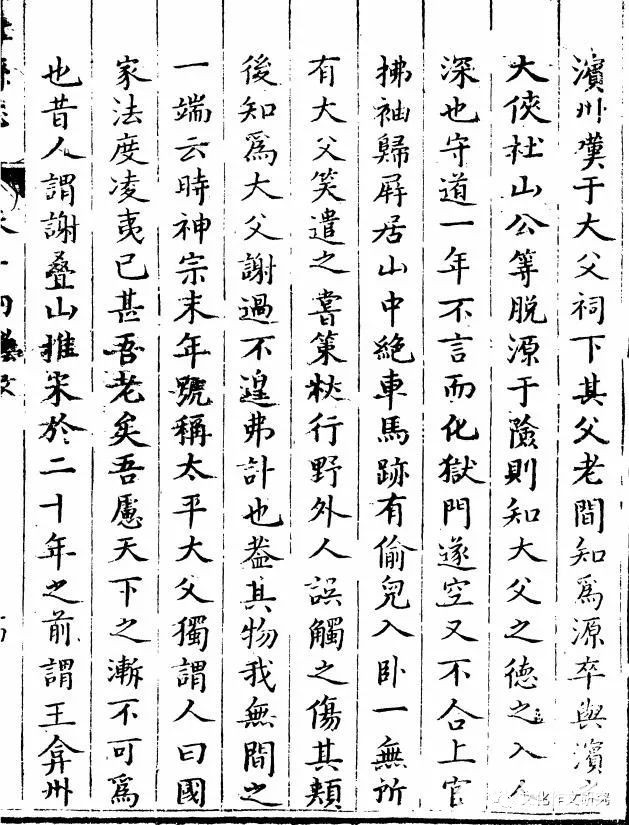 濱州嘆于大父祠下其父老間知為源卒與濱之
大俠杜山公等脫源于險則知大父之德之入人
深也守道一年不言而化獄門遂空又不合上官
拂袖歸屏居山中絕車馬跡有偷兒入臥一無所
有大父笑遣之嘗策杖行野外人誤觸之傷其頰
後知為大父謝過不遑弗計也葢其物我無間之
一端云時神宗末年號稱太平大父獨謂人曰國
家法度凌夷已甚吾老矣吾慮天下之漸不可為
也昔人謂謝叠山推宋於二十年之前謂王弇州